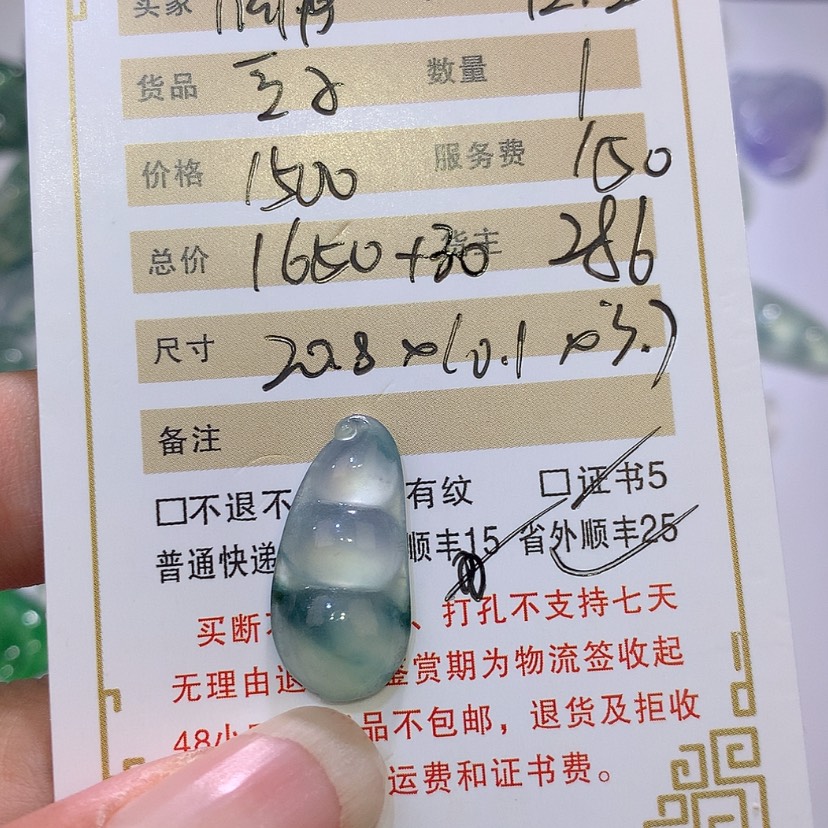 买家
货品 豆子 数量 1
价格 1500 服务费 150
总价 1650+30 货主 286
尺寸 20.8×10.1×3.7
备注
□不退不 有纹 □证书5
普通快递 顺丰15 省外顺丰25
买断 、打孔不支持七天
无理由退 鉴赏期为物流签收起
48小 品不包邮，退货及拒收
运费和证书费。